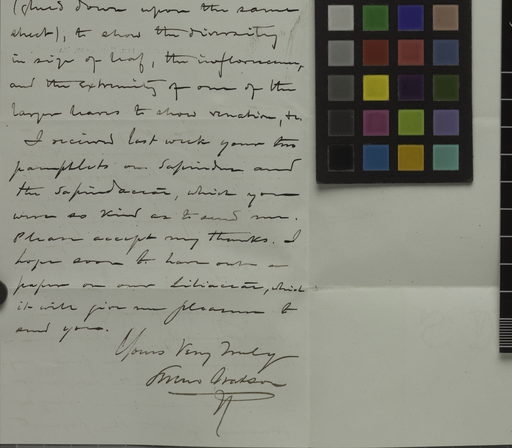 (glued down upon the same
sheet), to show the diversity
in size of leaf, the inflorescence,
and the extremity of one of the
larger leaves to show venation, &c.
I received last week your two
pamphlets on Sapindus and
the Sapindaceæ, which you
were so kind as to send me.
Please accept my thanks. I
hope soon to have out a
paper on our Liliaceæ, which
it will give me pleasure to
send you.
Yours Very Truly
Sereno Watson